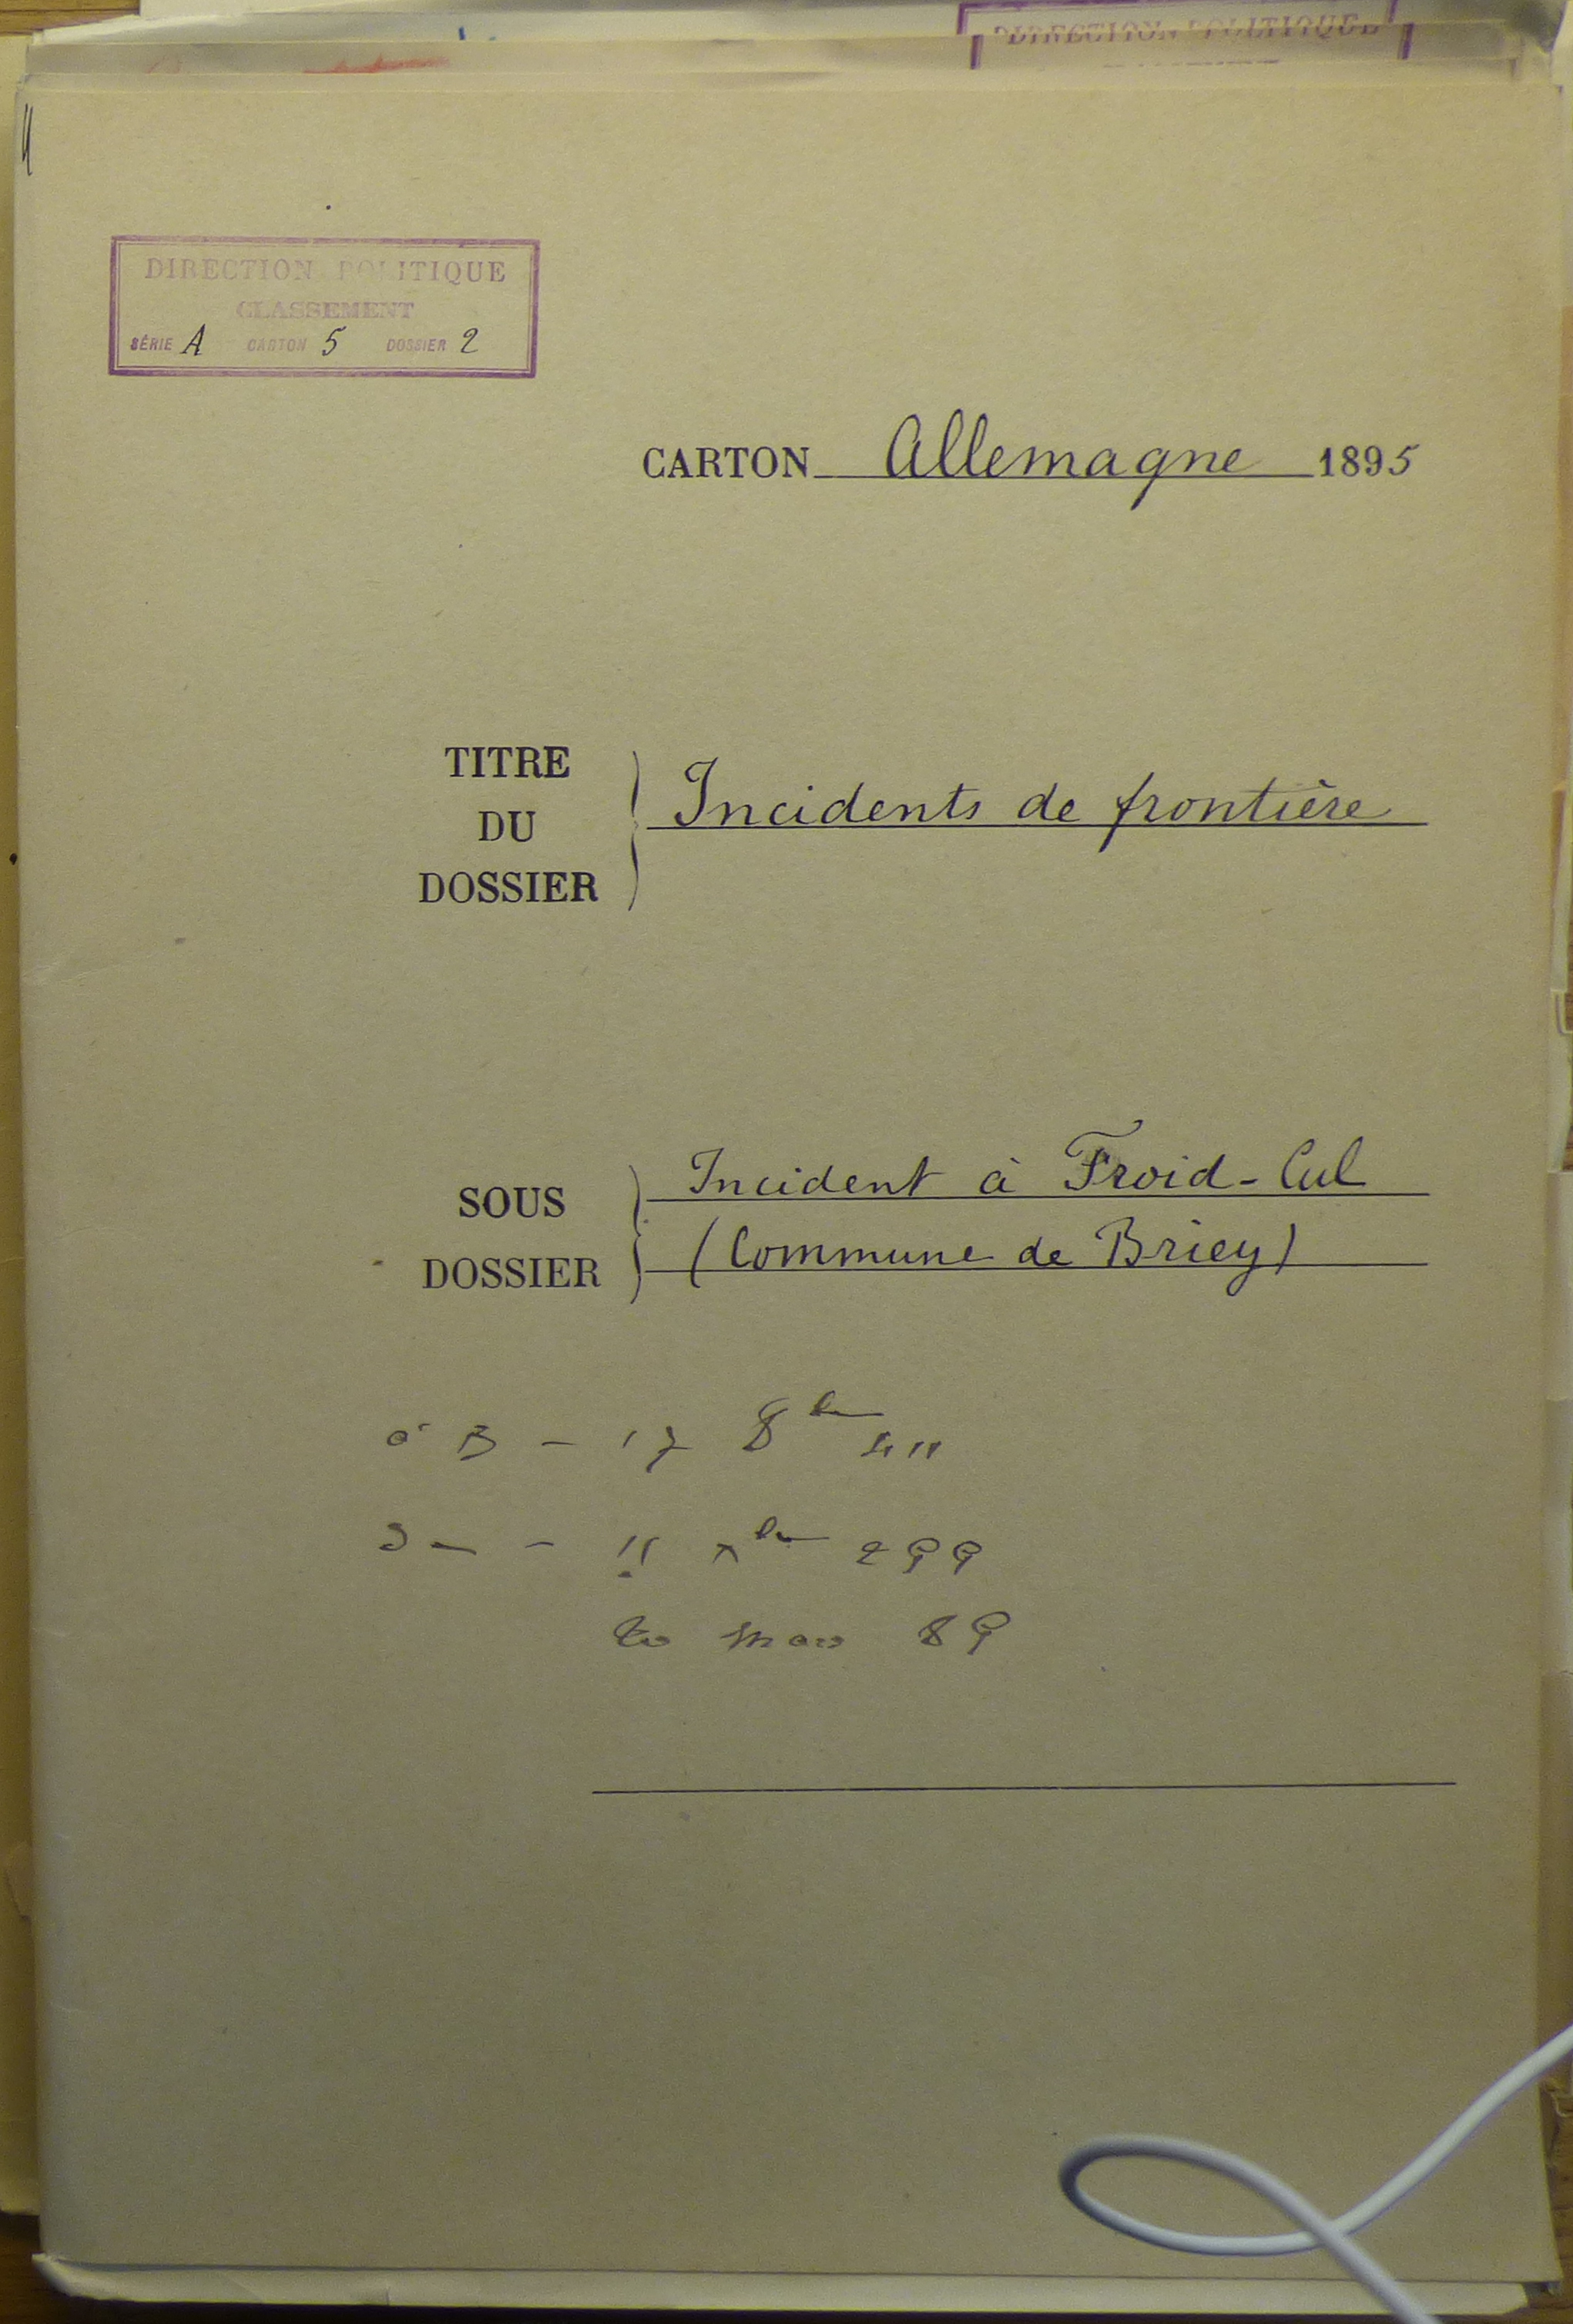 DIRECTION POLITIQUE
DIRECTION POLITIQUE
CLASSEMENT
SÉRIE A CARTON 5 DOSSIER 2
CARTON Allemagne 1895
TITRE
DU
DOSSIER
Incidents de frontière
SOUS
DOSSIER
Incident à Froid-Cul
(Commune de Briey)
à B - 17 8bre
- 11 xbre
mars 89